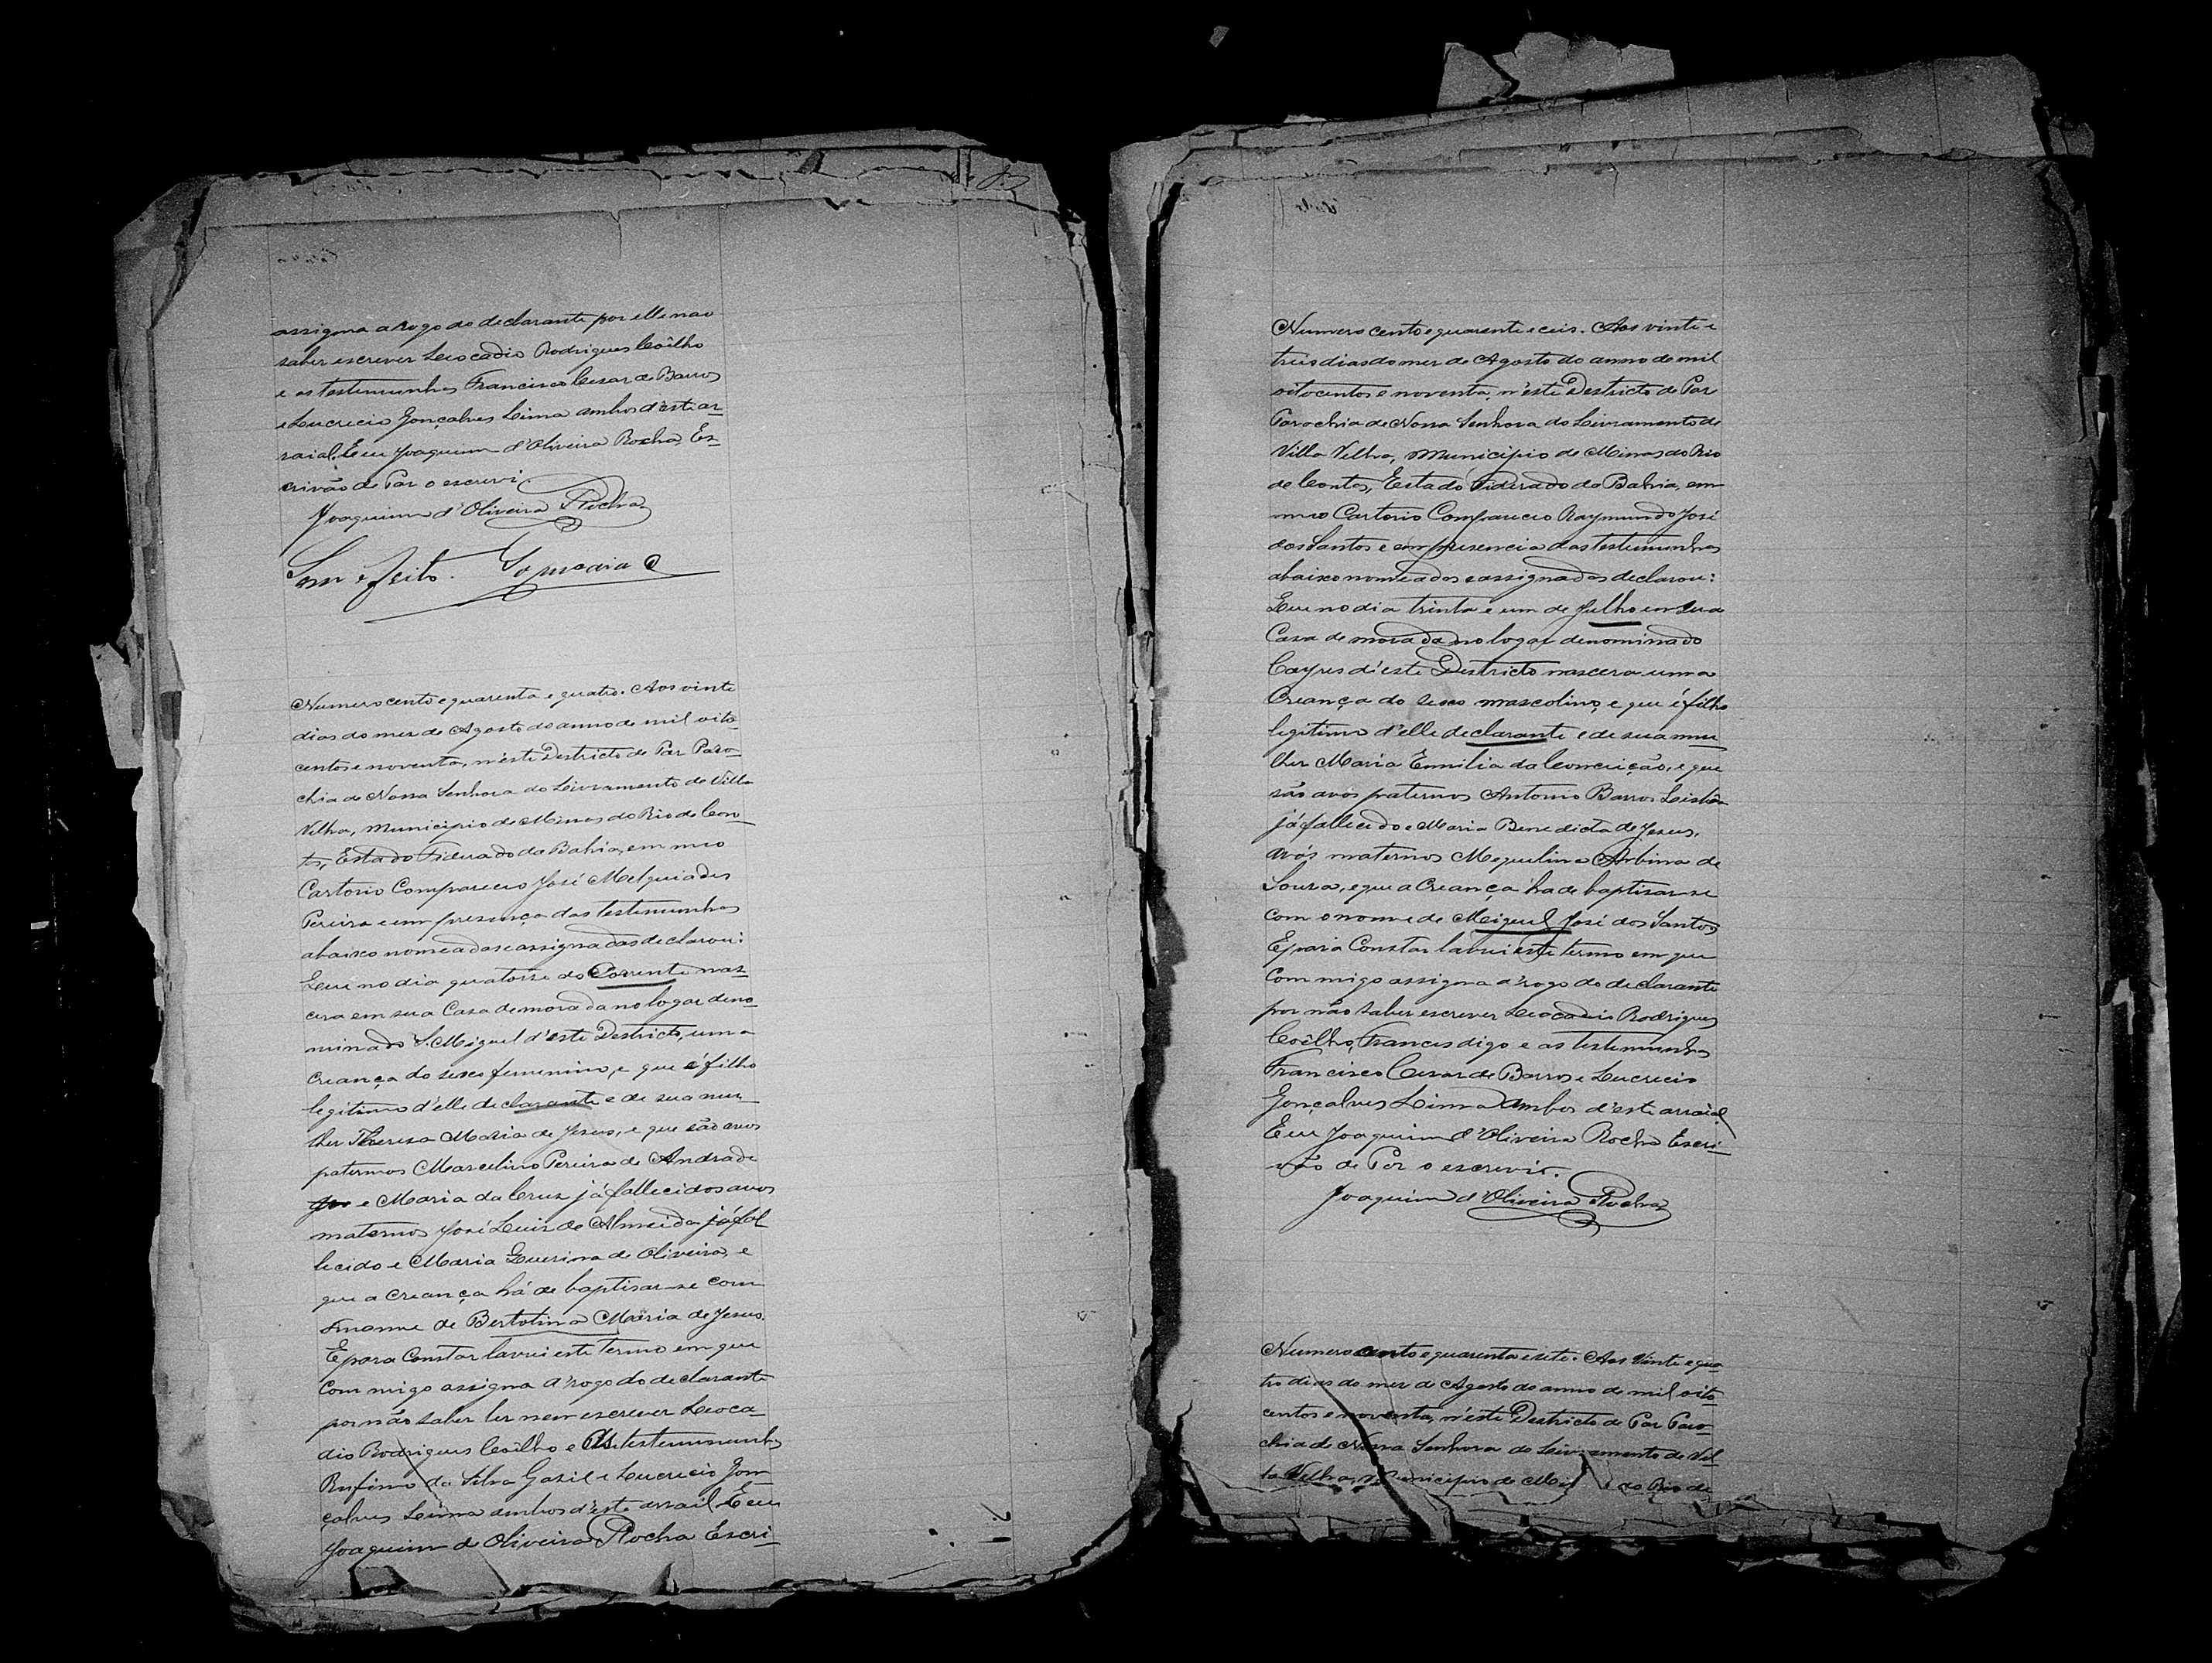 assigna a rogo do declarante por elle nao
saber escrever Leocadio Rodrigues Coêlho
e as testemunhas Francisco Cesar de Barros
e Lucrecio Gonçalves Lima ambos d'este ar-
raial. E eu Joaquim d'Oliveira Rocha Es-
crivão de Paz o escrevi
Joaquim d'Oliveira Rocha
Sem effeito.
Numero cento e quarenta e quatro. Aos vinte
dias do mez de Agosto do anno de mil oito
centos e noventa, n'este Destricto de Paz Paro-
chia de Nossa Senhora do Livramento de Villa
Velha, Municipio de Minas do Rio de Con-
tas, Estado Fiderado da Bahia, em meo
Cartorio Compareceo José Melquiades
Pereira e em presença das testemunhas
abaixo nomeadas e assignadas declarou:
Que no dia quatorze do Corrente nas-
cera em sua Casa de morada no logar deno-
minado S. Miguel d'este Destricto, uma
Creança do sexo femenino, e que é filho
legitimo d'elle declarante e de sua mu-
lher Thereza Maria de Jesus, e que são avos
paternos Marcelino Pereira de Andrade
e Maria da Cruz já fallecidos avos
maternos José Luiz de Almeida já fal
lecido e Maria Querina de Oliveira, e
que a creança há de baptisar-se com
o nome de Bertolina Maria de Jesus.
E para Constar lavrei este termo em que
Com migo assigna a rogo do declarante
por não saber ler nem escrever Leoca-
dio Rodrigues Coêlho e As testemunhas
Rufino da Silva Gazil e Lucrecio Gon
çalves Lima ambos d'este arrail. E eu
Joaquim de Oliveira Rocha Escri-
Numero cento e quarenta e ceis. Aos vinte e
tres dias do mez de Agosto do anno de mil
oitocentos e noventa, n'este Destricto de Paz
Parochia de Nossa Senhora do Livramento de
Villa Velha, Municipio de Minas do Rio
de Contas, Estado Fiderado da Bahia, em
meo Cartorio Compareceo Raymundo José
dos Santos e em presencia das testemunhas
abaixo nomeadas e assignadas declarou:
Que no dia trinta e um de Julho em sua
Casa de morada no logar denominado
Cayres d'este Destricto nascera uma
Creança do sexo mascolino, e que é filho
legitimo d'elle declarante e de sua mu-
lher Maria Emilia da Conceição, e que
são avos paternos Antonio Barros
já fallecido e Maria Benedicta de Jesus,
avós maternos Mequelina Arbina de
Souza, e que a Creança ha de baptisar-se
com o nome de Miguel José dos Santos
E para Constar lavrei este termo em que
Com migo assigna a rogo do declarante
por não saber escrever Leocadio Rodrigues
Coêlho, Frances digo e as testemunhas
Francisco Cesar de Barros e Lucrecio
Gonçalves Lima Ambos d'este arraial
E eu Joaquim d'Oliveira Rocha Escri-
vão de Paz o escrevi.
Joaquim d'Oliveira Rocha
Numero cento e quarenta e sete. Aos Vinte e qua-
tro dias do mez de Agosto do anno de mil oito
centos e noventa, n'este Destricto de Paz Paro-
chia de Nossa Senhora do Livramento de Vil-
la Velha, Municipio de do Rio de